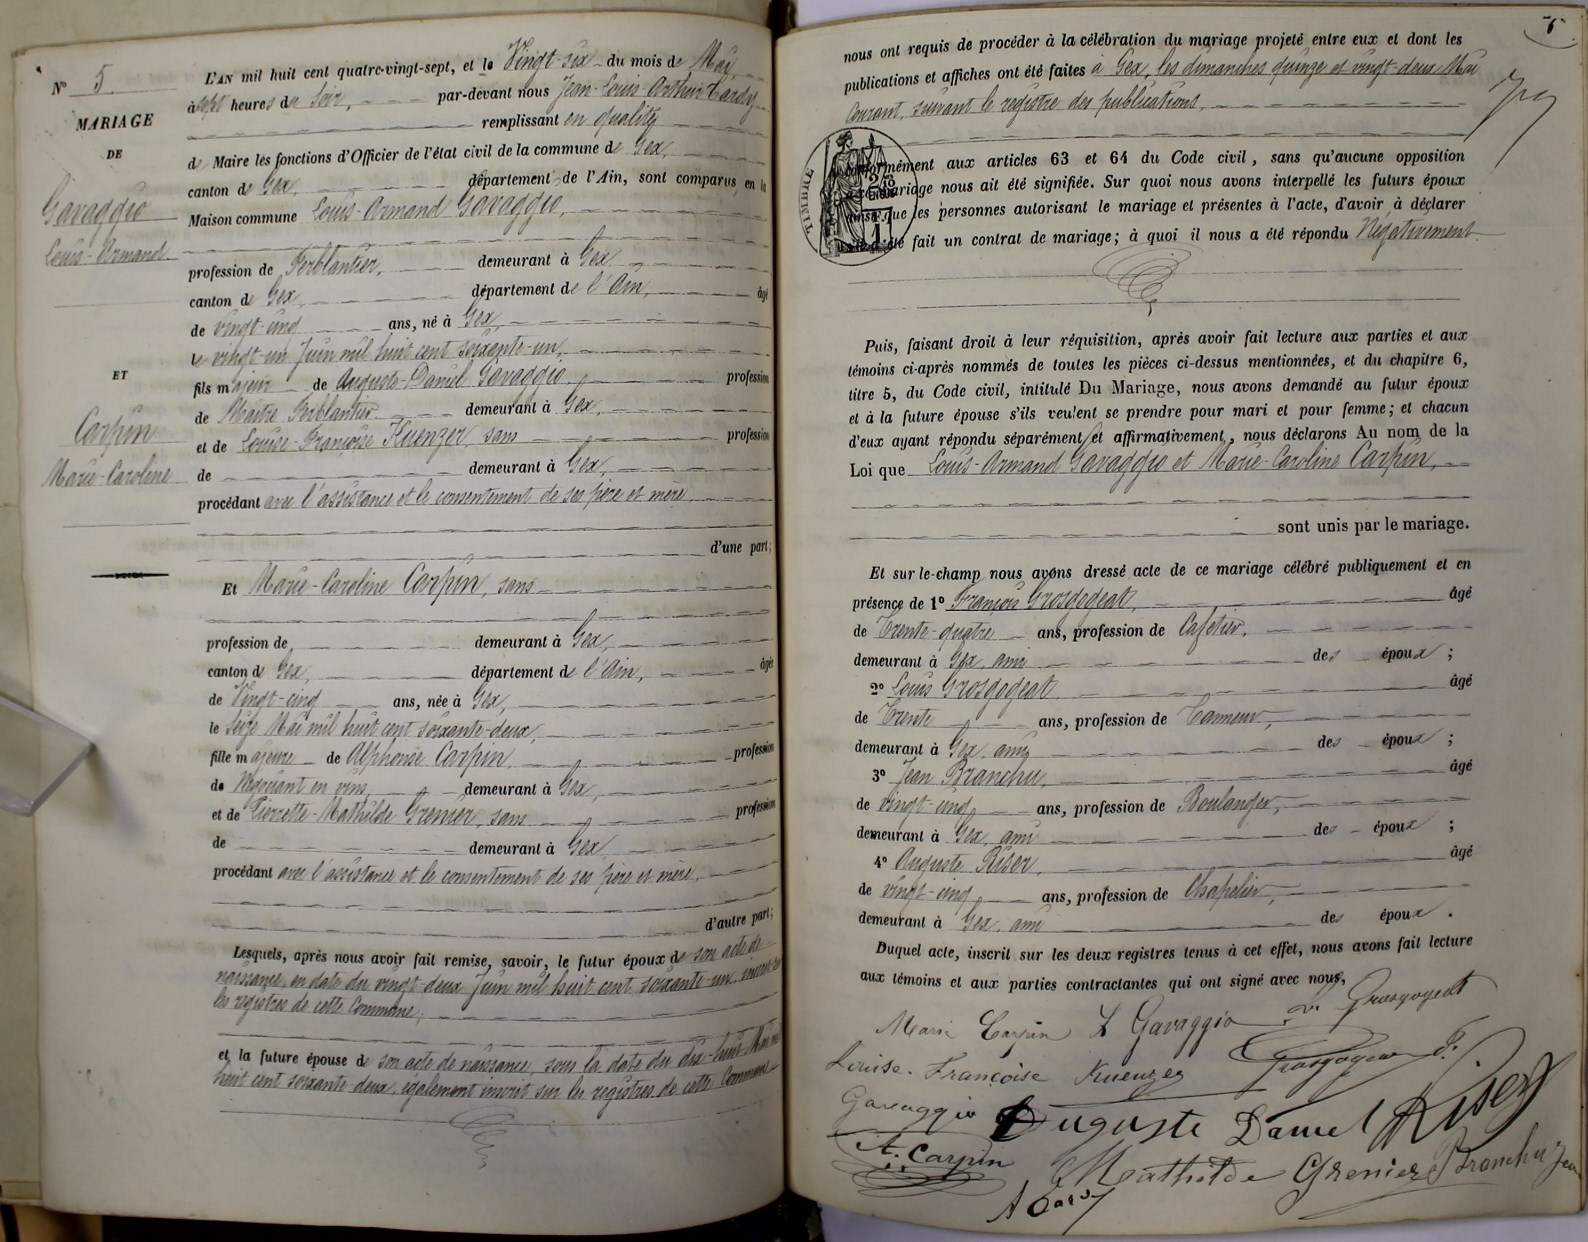 N° 5
MARIAGE
DE
Gavaggio
Louis-Armand
ET
Carpin
Marie-Caroline
L'AN mil huit cent quatre-vingt-sept, et le Vingt-six du mois de Mai
à sept heures du Soir, par-devant nous Jean-Louis Arthur Tardy
remplissant en qualité
de Maire les fonctions d'Officier de l'état civil de la commune de Gex,
canton de Gex, département de l'Ain, sont comparus en la
Maison commune Louis-Armand Gavaggio,
profession de Ferblantier, demeurant à Gex
canton de Gex, département de l'Ain, âgé
de vingt-cinq ans, né à Gex,
le vingt-un Juin mil huit cent soixante-un,
fils majeur de Auguste-Daniel Gavaggio, profession
de Maître Ferblantier demeurant à Gex,
et de Louise-Françoise Kuenzer, sans profession
de demeurant à Gex,
procédant avec l'assistance et le consentement de ses père et mère,
d'une part;
Et Marie-Caroline Carpin, sans
profession de, demeurant à Gex,
canton de Gex, département de l'Ain, âgée
de Vingt-cinq ans, née à Gex,
le Seize Mai mil huit cent soixante-deux,
fille majeure de Alphonse Carpin, profession
de Négociant en vins, demeurant à Gex,
et de Pierrette-Mathilde Grenier, sans profession
de demeurant à Gex,
procédant avec l'assistance et le consentement de ses père et mère,
d'autre part;
Lesquels, après nous avoir fait remise, savoir, le futur époux de son acte de
naissance, en date du vingt-deux Juin mil huit cent soixante-un, inscrit sur
les registres de cette Commune;
et la future épouse de son acte de naissance, sous la date du dix-huit Mai mil
huit cent soixante-deux, également inscrit sur les registres de cette Commune
nous ont requis de procéder à la célébration du mariage projeté entre eux et dont les
publications et affiches ont été faites à Gex, les dimanches quinze et vingt-deux Mai
Courant, suivant le registre des publications,
TIMBRE
conformément aux articles 63 et 64 du Code civil, sans qu'aucune opposition
à ce mariage nous ait été signifiée. Sur quoi nous avons interpellé les futurs époux
ainsi que les personnes autorisant le mariage et présentes à l'acte, d'avoir à déclarer
s'il a été fait un contrat de mariage; à quoi il nous a été répondu Négativement
Puis, faisant droit à leur réquisition, après avoir fait lecture aux parties et aux
témoins ci-après nommés de toutes les pièces ci-dessus mentionnées, et du chapitre 6,
titre 5, du Code civil, intitulé Du Mariage, nous avons demandé au futur époux
et à la future épouse s'ils veulent se prendre pour mari et pour femme; et chacun
d'eux ayant répondu séparément et affirmativement, nous déclarons Au nom de la
Loi que Louis-Armand Gavaggio et Marie-Caroline Carpin,
sont unis par le mariage.
Et sur-le-champ nous avons dressé acte de ce mariage célébré publiquement et en
présence de 1° François Grosgogeat, âgé
de Trente-quatre ans, profession de Cafetier,
demeurant à Gex, ami des époux;
2° Louis Grosgogeat âgé
de Trente ans, profession de Tanneur,
demeurant à Gex, ami des époux;
3° Jean Branchu, âgé
de vingt-cinq ans, profession de Boulanger,
demeurant à Gex, ami des époux;
4° Auguste Riser, âgé
de vingt-cinq ans, profession de Chapelier,
demeurant à Gex, ami des époux.
Duquel acte, inscrit sur les deux registres tenus à cet effet, nous avons fait lecture
aux témoins et aux parties contractantes qui ont signé avec nous,
Marie Carpin L Gavaggio Ls Grosgogeat
Louise-Françoise Kuenzer Grosgogeat F.
Gavaggio Auguste Daniel Riser
A. Carpin Mathilde Grenier Branchu Jean
A Tardy